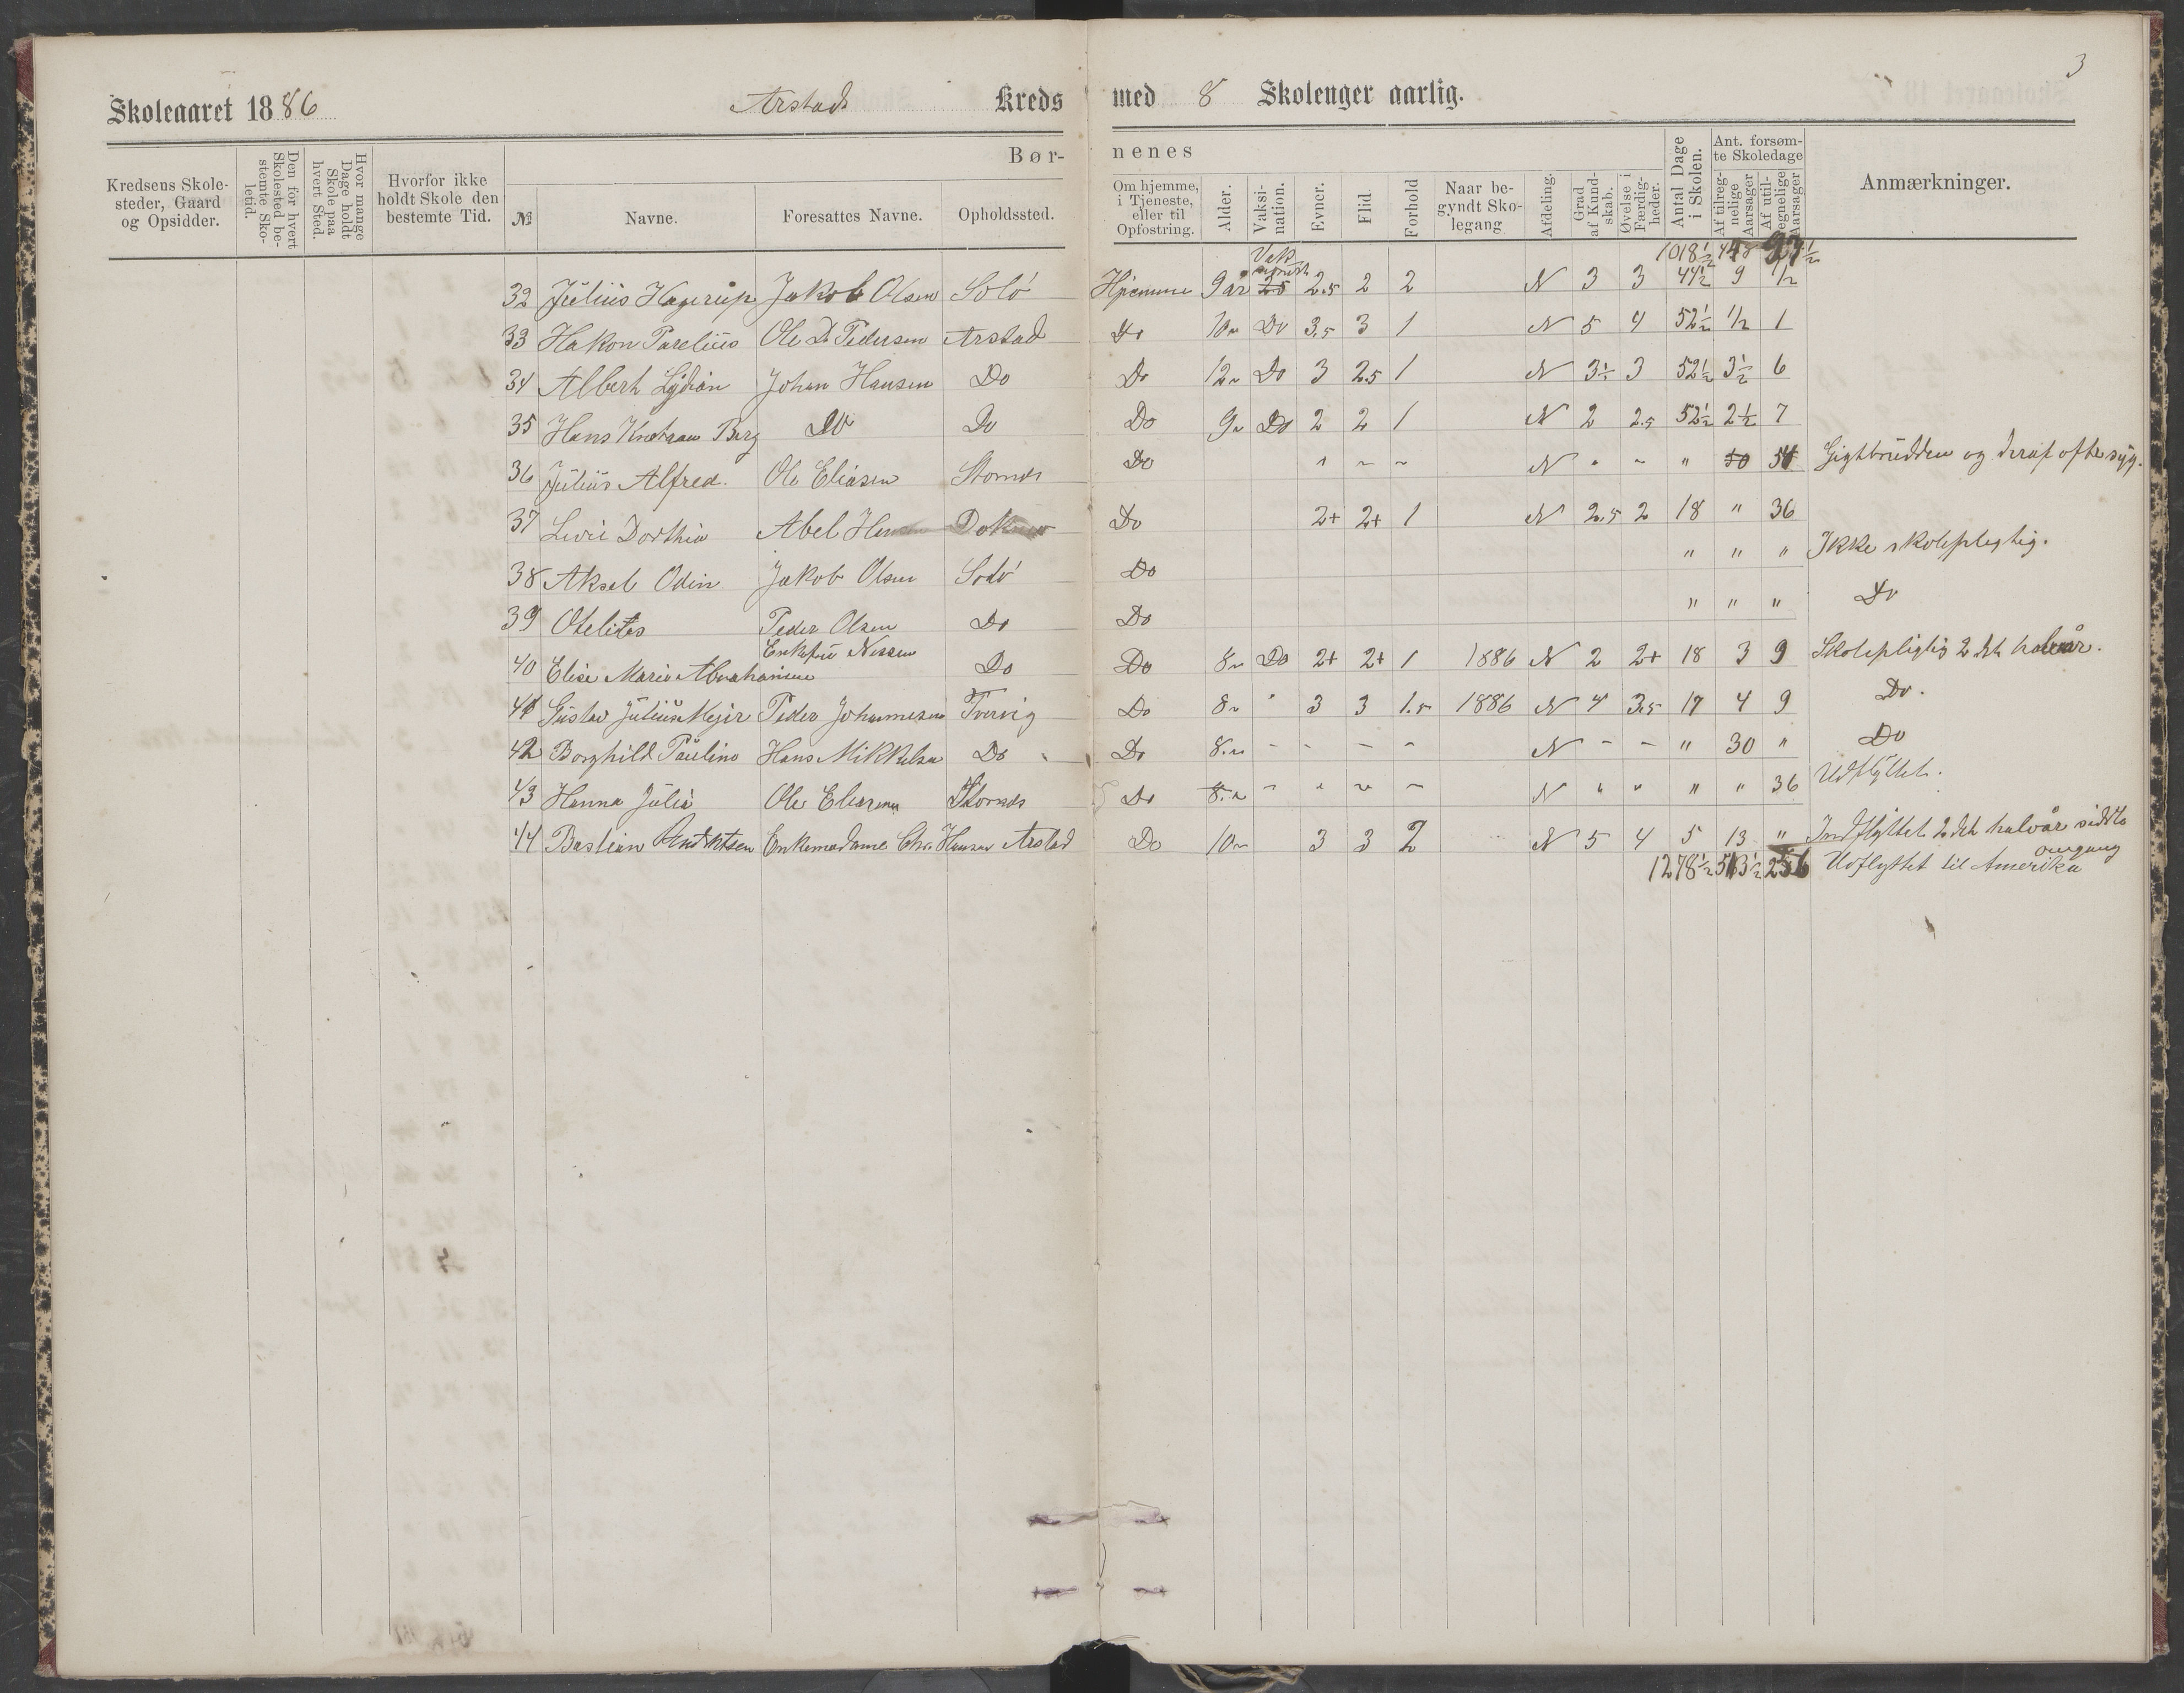 3
Skoleaaret 1886 Arstad Kreds med 8 Skolenger aarlig.
Kredsens Skolesteder, Gaard og Opsidder.
Den for hvert Skolested bestemte Skoletid.
Hvor mange Dage holdt Skole paa hvert Sted.
Hvorfor ikke holdt Skole den bestemte Tid.
Børnenes
№ Navne. Foresattes Navne. Opholdssted.
Om hjemme, i Tjeneste, eller til Opfostring.
Alder. Vaksination. Evner. Flid. Forhold
Naar begyndt Skolegang
Afdeling. Grad af Kundskab. Øvelse i Færdigheder.
Antal Dage i Skolen.
Ant. forsømte Skoledage
Af tilregnelige Aarsager
Af utilregnelige Aarsager
Anmærkninger.
1018½
32 Julius Hagerup Jakob Olsen Solö Hjemme 9 år 2.5 2 2 N 3 3 44½ 9 ½
33 Hakon Parelius Ole D Pedersen Arstad Do 10" Do 3.5 3 1 N 5 4 52½ ½ 1
34 Albert Lydian Johan Hansen Do Do 12" Do 3 2.5 1 N 3½ 3 52½ 3½ 6
35 Hans Berg Do Do Do 9" Do 2 2 1 N 2 2.5 52½ 2½ 7
36 Julius Alfred. Ole Eliasen Do " " " N " " " 50 Gigtbrudden og deraf ofte syg.
37 Dorthia Abel Do 2+ 2+ 1 N 2.5 2 18 " 36
38 Aksel Odin Jakob Olsen Solö Do " " " Ikke skolepligtig.
39 Otelius Peder Olsen Do Do " " " Do
40 Elise Marie Abrahamine Enkefru Nessen Do Do 8" Do 2+ 2+ 1 1886 N 2 2+ 18 3 9 Skolepligtig 2det halvår.
41 Gustav Julius Mejer Peder Johannesen Tvervig Do 8" " 3 3 1.5 1886 N 4 3.5 17 4 9 Do.
42 Borghild Pauline Hans Mikkelsen Do Do 8." " " " " N " " " 30 " Do
43 Hanna Julia Ole Eliasen Do 8." " " " " N " " " " 36 Udflyttet.
44 Bastian Enkemadame Chr. Hansen Arstad Do 10" 3 3 2 N 5 4 5 13 " Indflyttet 2det halvår sidste omgang
1278½ 513½ 256 Udflyttet til Amerika